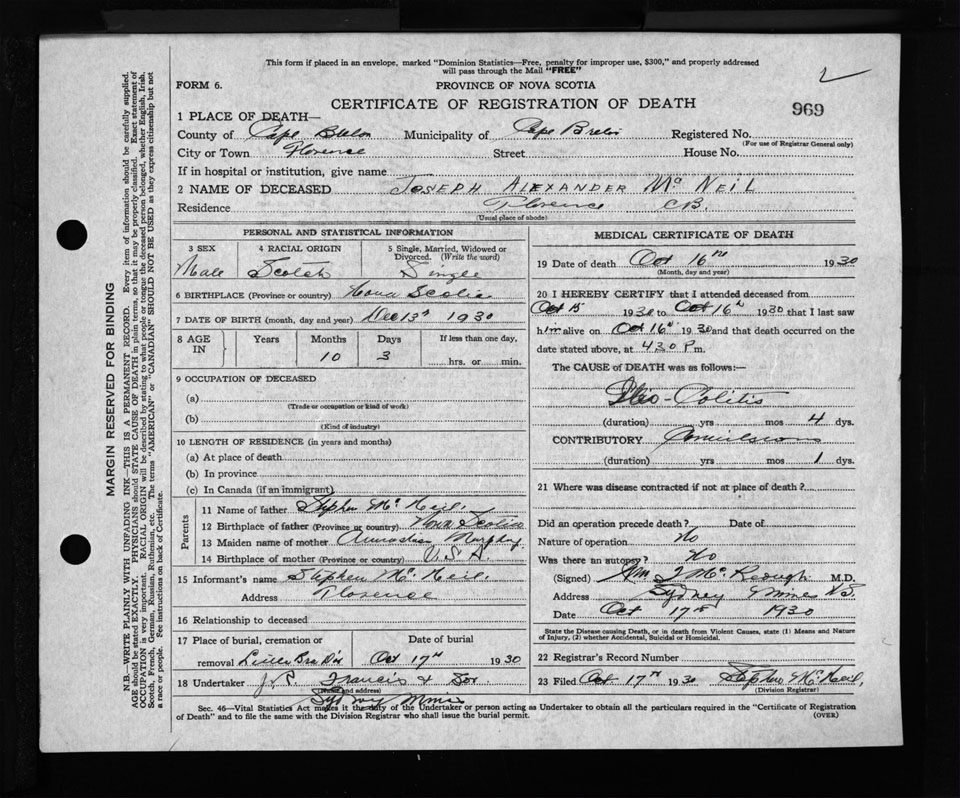 This form if placed in an envelope, marked "Dominion Statistics—Free, penalty for improper use, $300," and properly addressed
will pass through the Mail "FREE"
2
FORM 6.
PROVINCE OF NOVA SCOTIA
CERTIFICATE OF REGISTRATION OF DEATH
969
1 PLACE OF DEATH—
County of Cape Breton Municipality of Cape Breton Registered No.
(For use of Registrar General only)
City or Town Florence Street House No.
If in hospital or institution, give name
2 NAME OF DECEASED JOSEPH ALEXANDER Mc NEIL
Residence Florence C.B.
(Usual place of abode)
PERSONAL AND STATISTICAL INFORMATION
3 SEX 4 RACIAL ORIGIN 5 Single, Married, Widowed or
Divorced. (Write the word)
Male Scotch Single
6 BIRTHPLACE (Province or country) Nova Scotia
7 DATE OF BIRTH (month, day and year) Dec 13th 1930
8 AGE IN Years Months Days If less than one day,
10 3 hrs. or min.
9 OCCUPATION OF DECEASED
(a)
(Trade or occupation or kind of work)
(b)
(Kind of industry)
10 LENGTH OF RESIDENCE (in years and months)
(a) At place of death
(b) In province
(c) In Canada (if an immigrant)
Parents
11 Name of father Stephen Mc Neil.
12 Birthplace of father (Province or country) Nova Scotia
13 Maiden name of mother Murphy
14 Birthplace of mother (Province or country) U.S.A.
15 Informant's name Stephen Mc Neil.
Address Florence
16 Relationship to deceased
17 Place of burial, cremation or Date of burial
removal Little Bras D'or Oct 17th 1930
18 Undertaker Francis & Son
(Name and address)
Sydney Mines
MEDICAL CERTIFICATE OF DEATH
19 Date of death Oct 16th 1930
(Month, day and year)
20 I HEREBY CERTIFY that I attended deceased from
Oct 15 1930 to Oct 16th 1930 that I last saw
him alive on Oct 16th 1930 and that death occurred on
date stated above, at 430 P m.
The CAUSE of DEATH was as follows:—
Ileo-Colitis
(duration) yrs mos 4 dys.
CONTRIBUTORY Convulsions
(duration) yrs mos 1 dys.
21 Where was disease contracted if not at place of death?
Did an operation precede death? No Date of
Nature of operation
Was there an autopsy? No
(Signed) Wm Mc Keough M.D.
Address Sydney Mines N.S.
Date Oct 17th 1930
State the Disease causing Death, or in death from Violent Causes, state (1) Means and Nature
of Injury, (2) whether Accidental, Suicidal or Homicidal.
22 Registrar's Record Number
23 Filed Oct 17th 1930 Stephen Mc Neil.
(Division Registrar)
Sec. 46—Vital Statistics Act makes it the duty of the Undertaker or person acting as Undertaker to obtain all the particulars required in the "Certificate of Registration
of Death" and to file the same with the Division Registrar who shall issue the burial permit. (OVER)
MARGIN RESERVED FOR BINDING
N.B.—WRITE PLAINLY WITH UNFADING INK—THIS IS A PERMANENT RECORD. Every item of information should be carefully supplied.
AGE should be stated EXACTLY. PHYSICIANS should STATE CAUSE OF DEATH in plain terms, so that it may be properly classified. Exact statement of
OCCUPATION is very important. RACIAL ORIGIN will be described by stating to what people or tongue the deceased person belonged, whether English, Irish,
Scotch, French, German, Russian, Ruthenian, etc. The terms "AMERICAN" or "CANADIAN" SHOULD NOT BE USED as they express citizenship but not
a race or people. Fee instructions on back of Certificate.